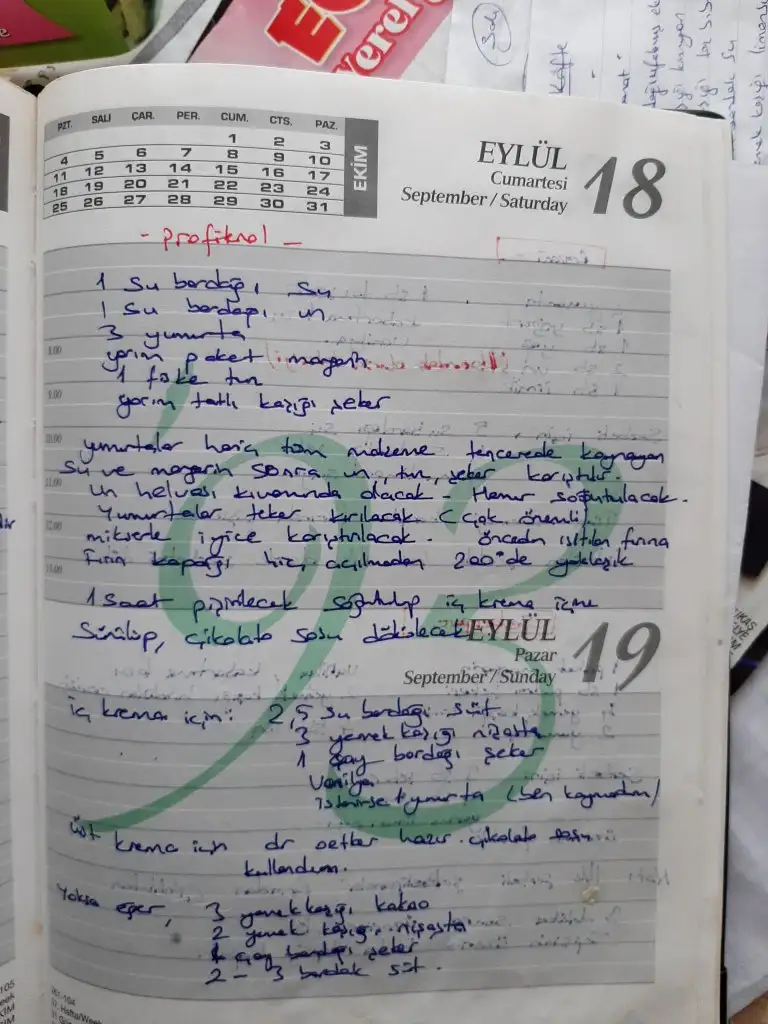 PZT. SALI ÇAR. PER. CUM. CTS. PAZ.
1 2 3
4 5 6 7 8 9 10
11 12 13 14 15 16 17
18 19 20 21 22 23 24
25 26 27 28 29 30 31
EKİM
EYLÜL
Cumartesi
September / Saturday
18
- profiterol -
1 su bardağı su
1 su bardağı un
3 yumurta
8.00
yarım paket margarin
1 fiske tuz
9.00
yarım tatlı kaşığı şeker
10.00
yumurtalar hariç tüm malzeme tencerede kaynayan
su ve margarin sonra un, tuz, şeker karıştırılır.
11.00
un helvası kıvamında olacak - Hamur soğutulacak.
Yumurtalar teker kırılacak (çok önemli)
12.00
mikserle iyice karıştırılacak. önceden ısıtılan fırına
Fırın kapağı hiç açılmadan 200° de yaklaşık
1 saat pişirilecek soğutulup iç krema içine
sürülüp, çikolata sosu dökülecek
EYLÜL
Pazar
September / Sunday
19
iç krema için: 2,5 su bardağı süt
3 yemek kaşığı nişasta
1 çay bardağı şeker
Vanilya
istenirse yumurta (ben koymadım)
üst krema için dr oetker hazır çikolata sosu
kullandım.
Yoksa eğer, 3 yemek kaşığı kakao
2 yemek kaşığı nişasta
1 çay bardağı şeker
2 - 3 bardak süt.
93